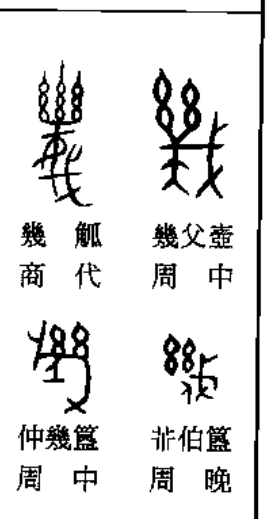 幾 觚
商 代
幾父壺
周 中
仲幾簋
周 中
伯簋
周 晚